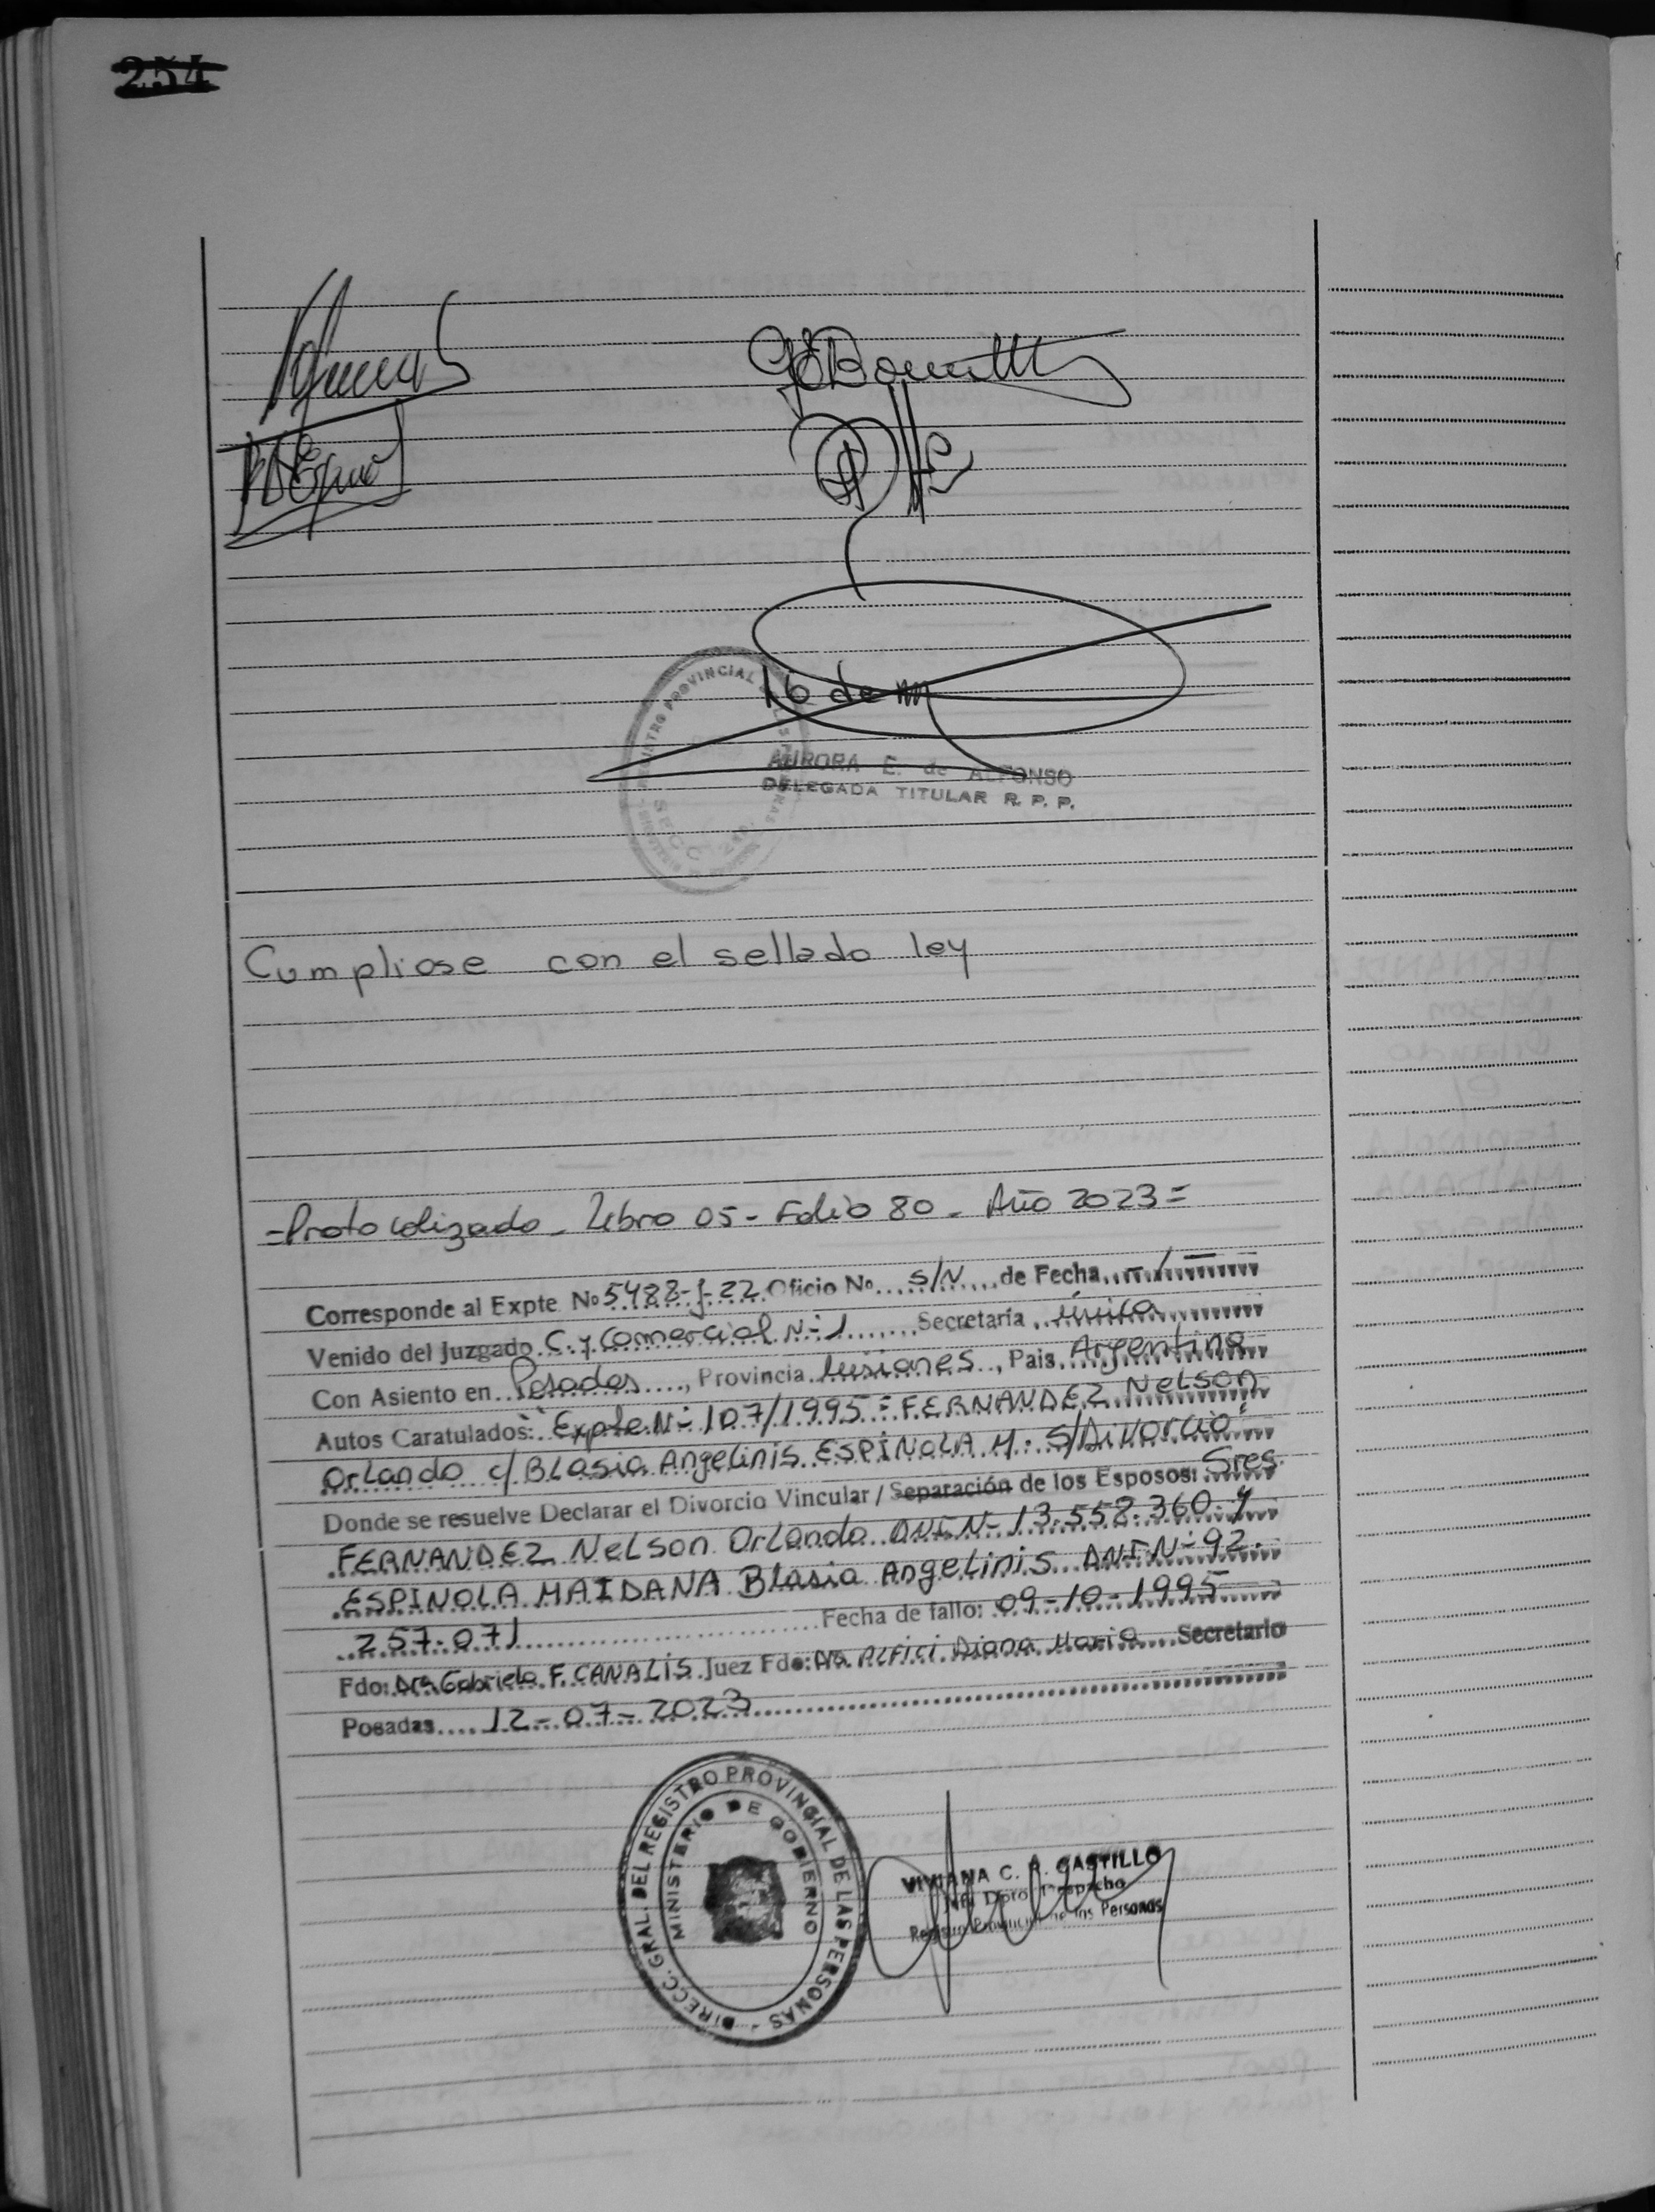 254
16 de m
REGISTRO PROVINCIAL
SECC.
AURORA E. de ALFONSO
DELEGADA TITULAR R. P. P.
Cumpliose con el sellado ley
=Protocolizado - Libro 05 - Folio 80 - Año 2023=
Corresponde al Expte Nº 5488-J-22 Oficio No. S/N de Fecha - / -
Venido del Juzgado C. y Comercial Nº 1 Secretaría única
Con Asiento en Posadas, Provincia Misiones, Pais Argentina
Autos Caratulados: "Expte Nº 107/1995 = FERNANDEZ Nelson
Orlando c/ Blasia Angelinis ESPINOLA M. S/Divorcio"
Donde se resuelve Declarar el Divorcio Vincular / Separación de los Esposos: Sres.
FERNANDEZ Nelson Orlando DNI Nº 13.558.360 y
ESPINOLA MAIDANA Blasia Angelinis DNI Nº 92.
257.071 Fecha de fallo: 09-10-1995
Fdo: Dra Gabriela F. CANALIS Juez Fdo: Dra. Alfici Diana Maria Secretario
Posadas 12-07-2023
DIRECC. GRAL. DEL REGISTRO PROVINCIAL DE LAS PERSONAS -
MINISTERIO DE GOBIERNO
VIVIANA C. R. CASTILLO
Dpto. Despacho
Registro Provincial de las Personas